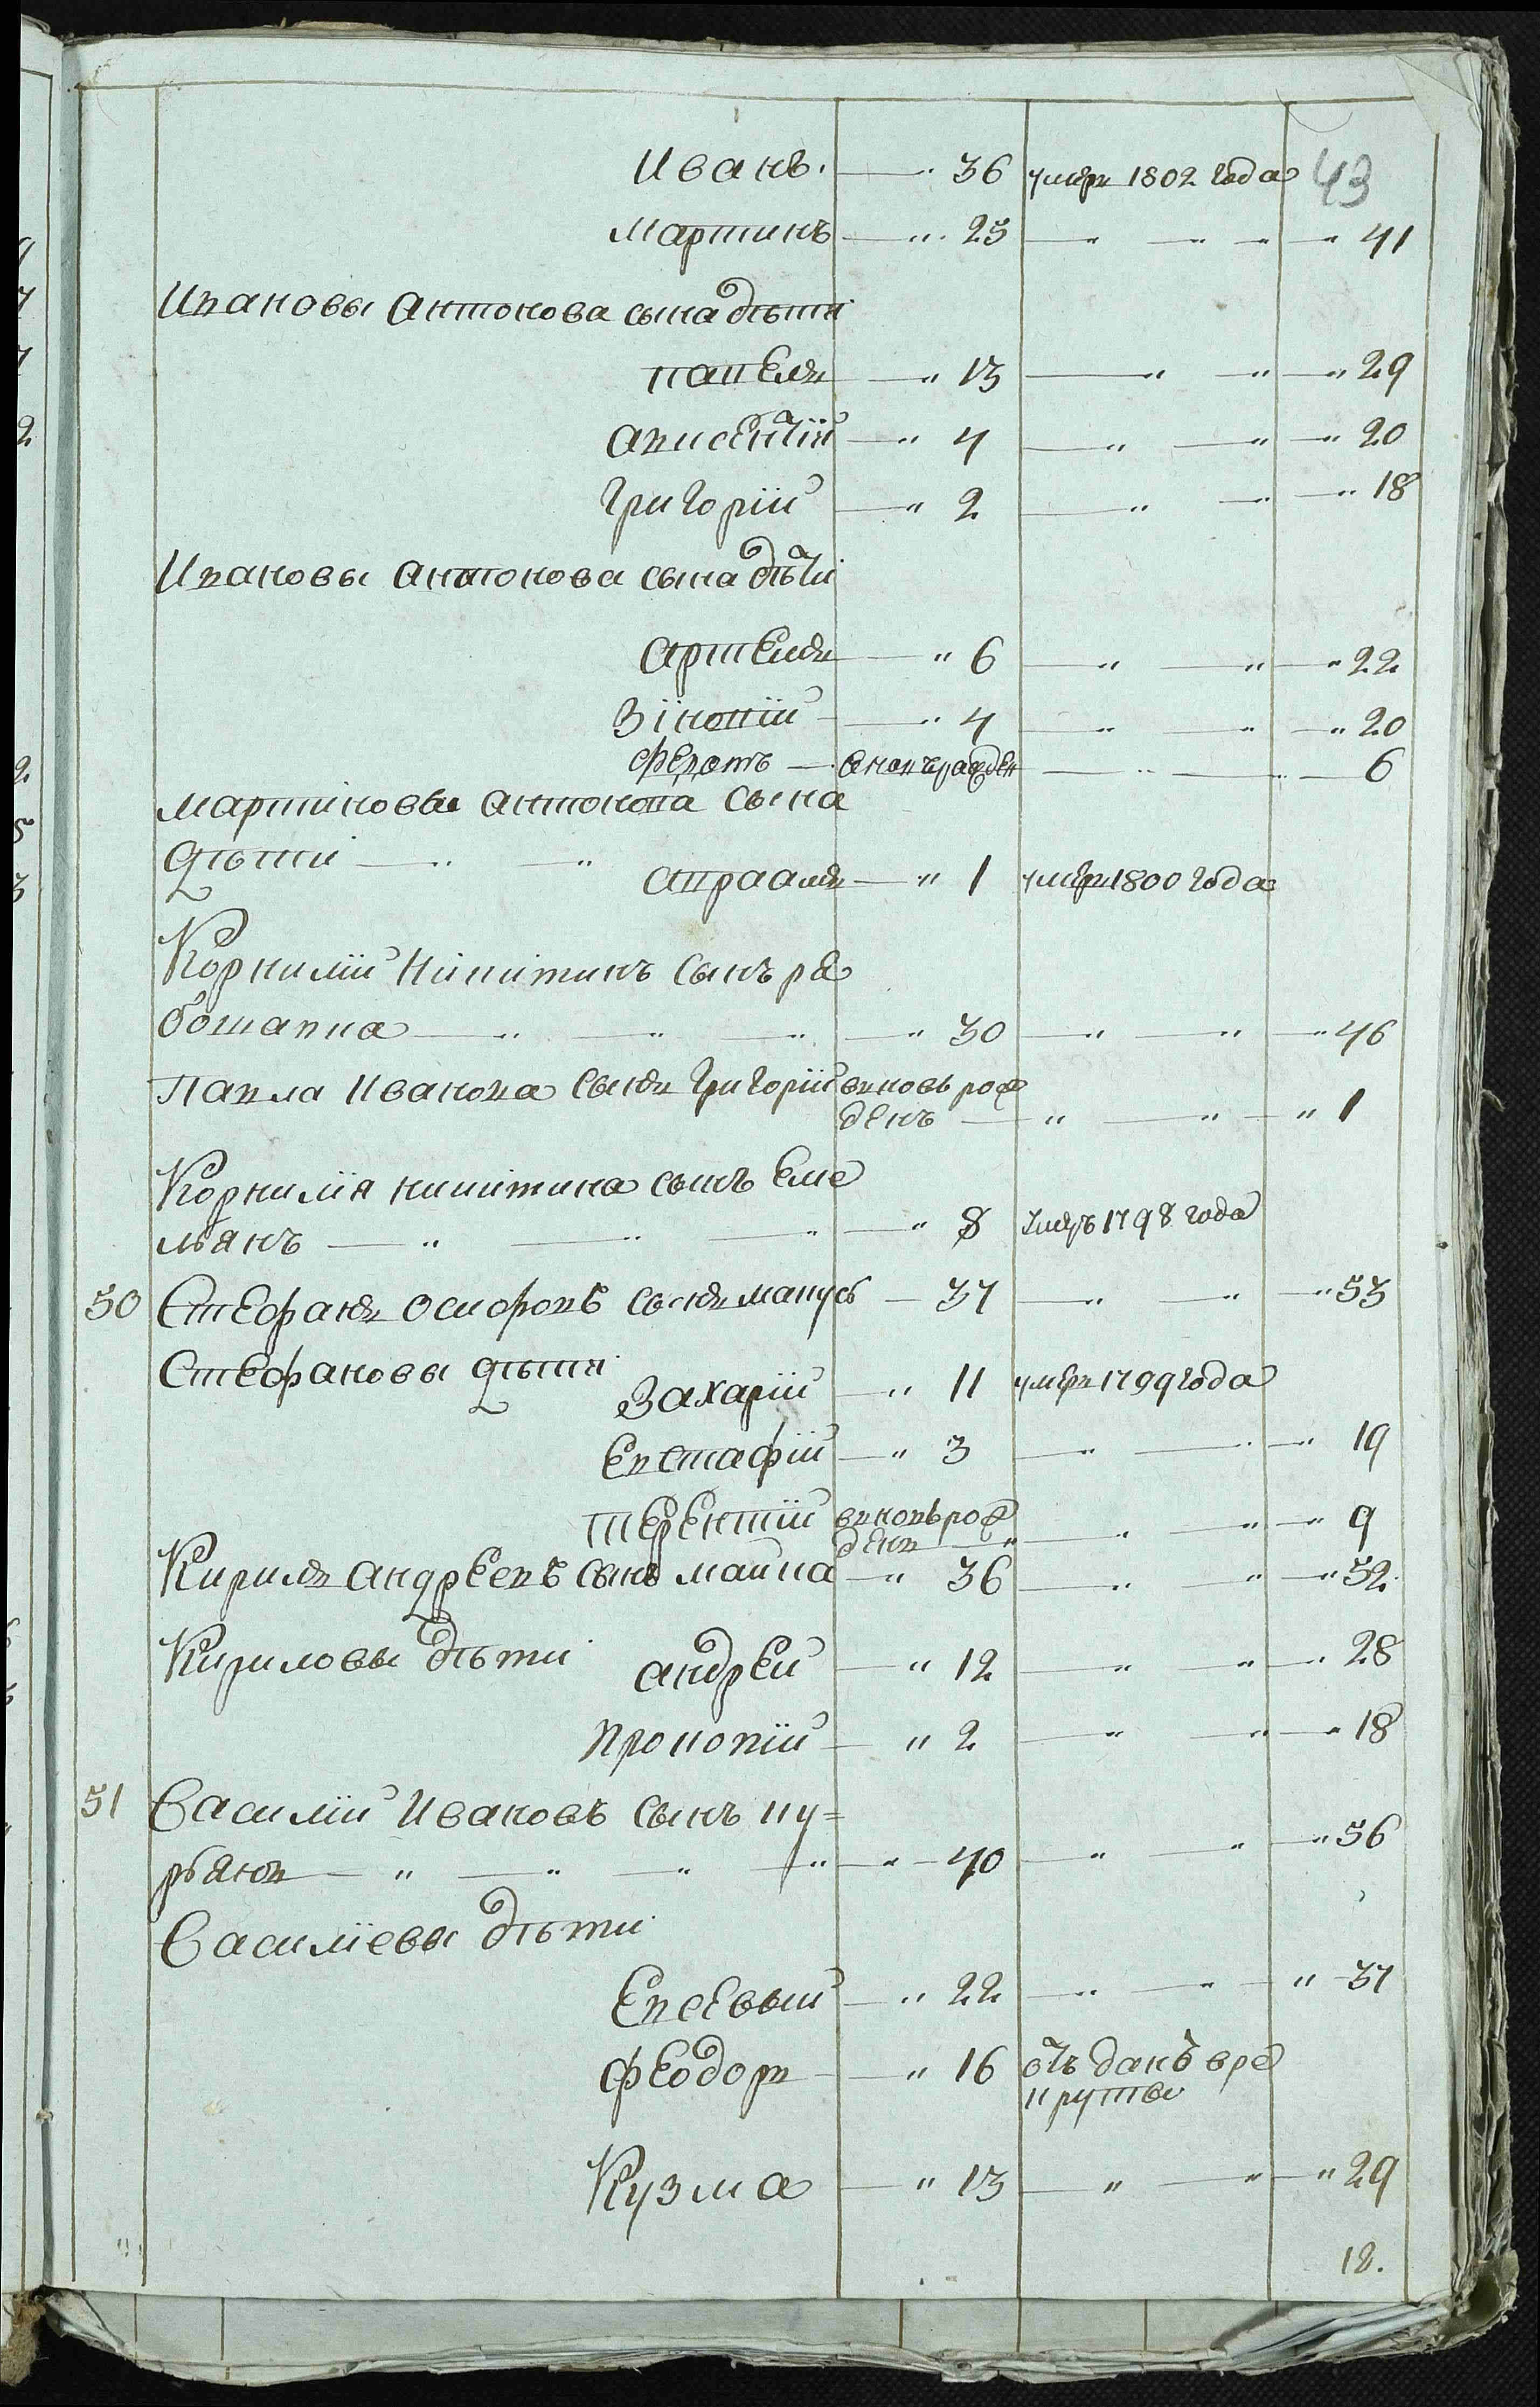 43
Иванъ. 36 умеръ 1802 года
Мартинъ 25 41
Ивановы Антонова сына дѣти
Павелъ 13 29
Авксентий 4 20
Григорій 2 18
Ивановы Антонова сына дѣти
Артемъ 6 22
Зіновій 4 20
Федотъ 6
Мартиновы Антонова сына
дѣти Авраамъ 1 умеръ 1800 года
Корнилій Никитинъ сынъ ра
ботапка 30 46
Павла Иванова сынъ Григорій вновь рож
денъ 1
Корнилія Никитина сынъ Еме
льянъ 8 умеръ 1798 года
50 Стефанъ Осифовъ сынъ 37 53
Стефановы дѣти
Захарій 11 умеръ 1799 года
Евстафій 3 19
Терентій вновь рож
денъ 9
Кирилъ Андреевъ сынъ 36 52
Кириловы дѣти Андрей 12 28
Прокопій 2 18
51 Василій Ивановъ сынъ ку=
рьянъ 40 56
Василіевы дѣти
Евсевый 22 37
Феодоръ 16 отъданъ вре
круты
Кузма 13 29
12.